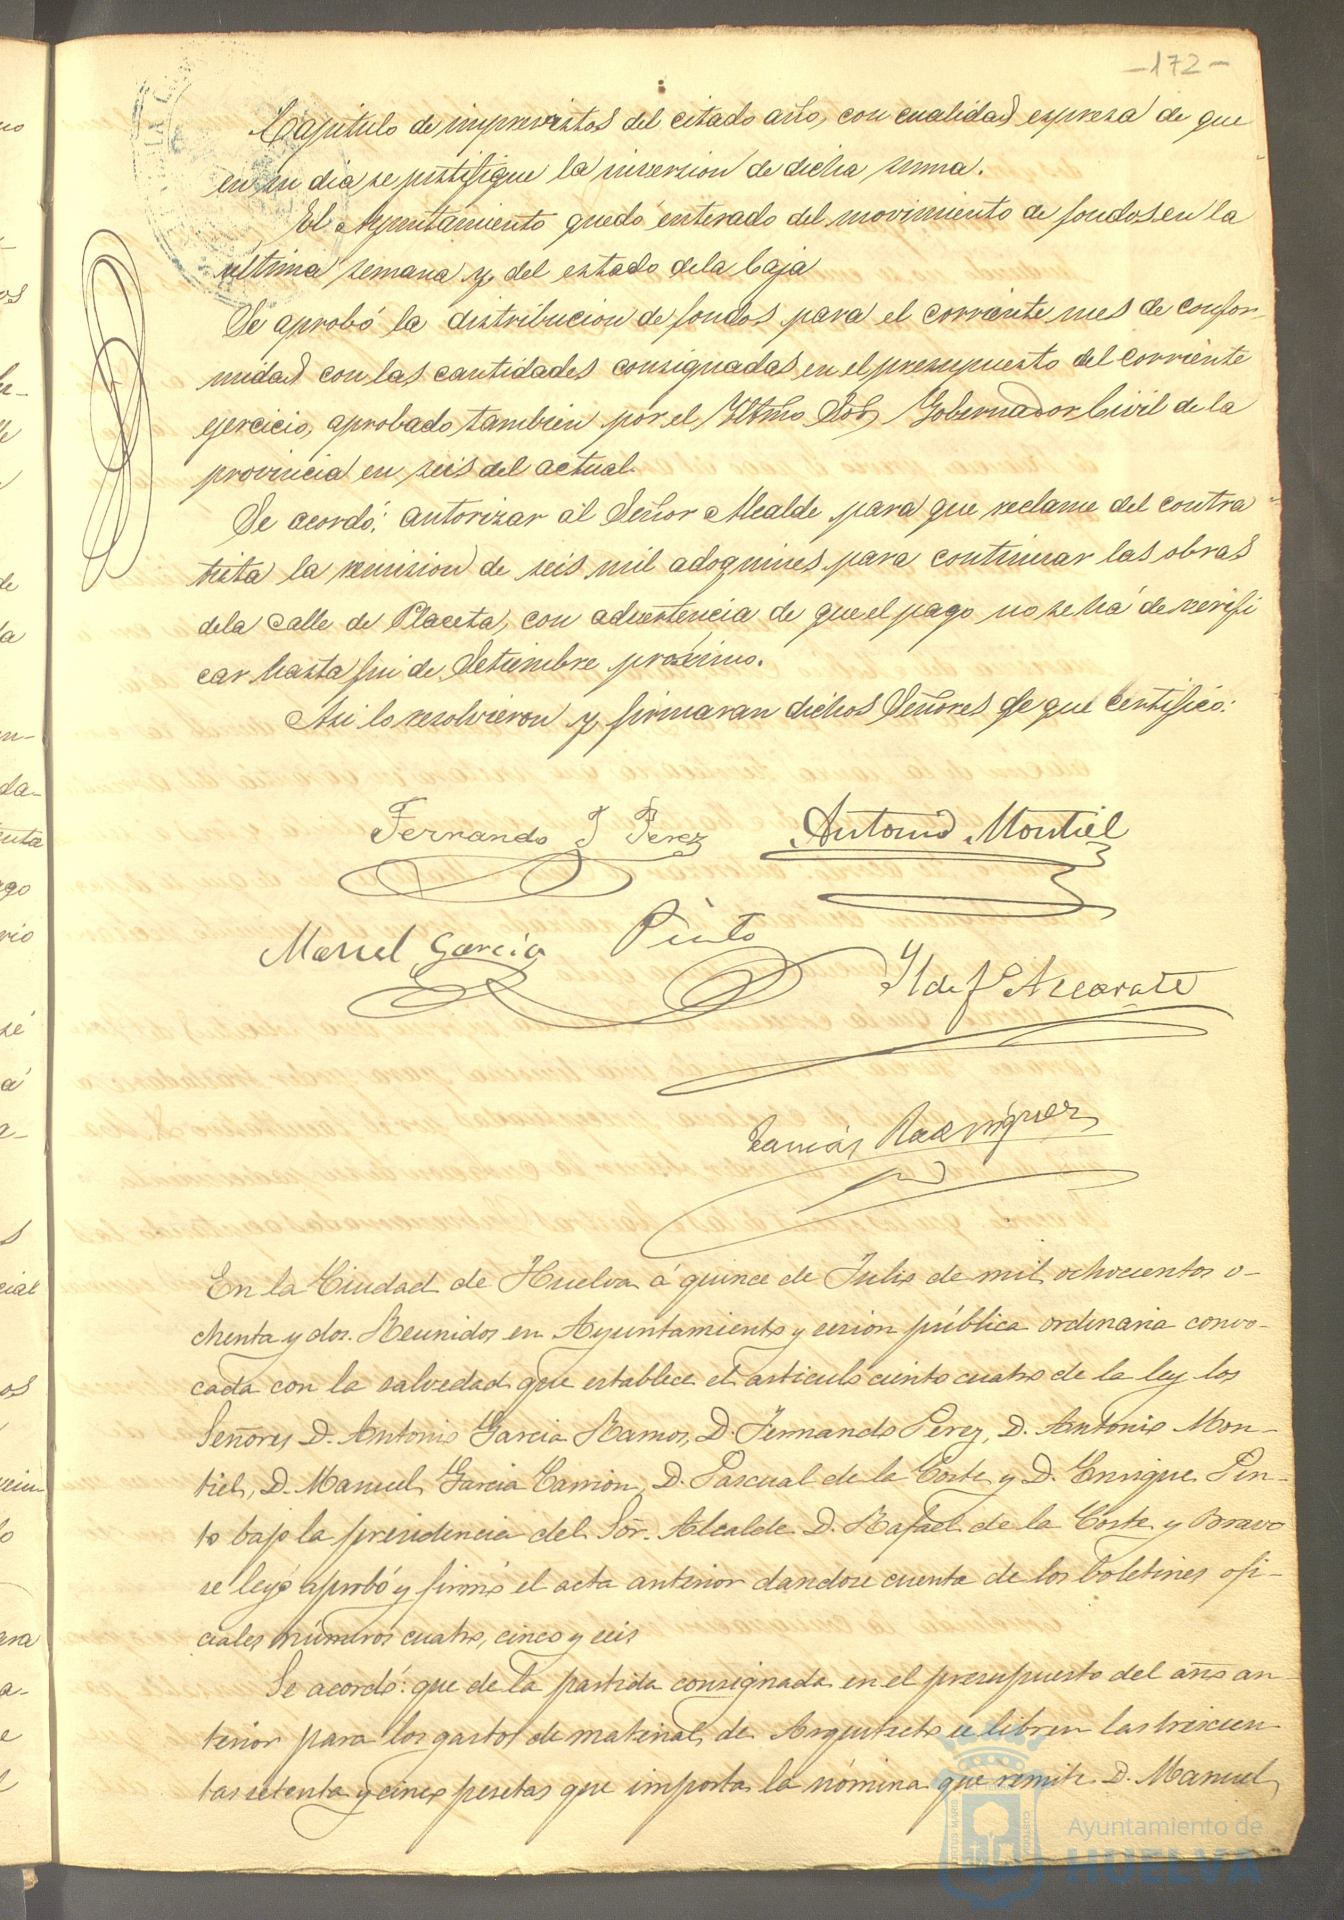 -172-
Capitulo de imprevistos del citado año, con cualidad expresa de que
en su dia se justifique la inversion de dicha suma.
El Ayuntamiento quedó enterado del movimiento de fondos en la
ultima semana y del estado dela Caja
Se aprobó la distribucion de fondos para el corriente mes de confor-
midad con las cantidades consignadas en el presupuesto del corriente
ejercicio, aprobado tambien por el Iltmo Sor Gobernador Civil de la
provincia en seis del actual.
Se acordó: autorizar al Señor Alcalde para que reclame del contra
tista la remision de seis mil adoquines para continuar las obras
dela calle de Placeta, con advertencia de que el pago no se há de verifi
car hasta fin de Setiembre próximo.
Asi lo resolvieron y firmaran dichos Señores de que certifico:
Fernando J Perez Antonio Montiel
Manuel Garcia Pinto
Ildef.º Azcarate
Tomás Rodriguez
En la Ciudad de Huelva á quince de Julio de mil ochocientos o-
chenta y dos. Reunidos en Ayuntamiento y sesion pública ordinaria convo-
cada con la salvedad que establece el articulo ciento cuatro de la ley los
Señores D. Antonio Garcia Ramos, D. Fernando Perez, D. Antonio Mon-
tiel, D. Manuel Garcia Carrion, D. Pascual de la Corte y D. Enrique Pin-
to bajo la presidencia del Sor. Alcalde D. Rafael de la Corte y Bravo
se leyó aprobó y firmó el acta anterior dandose cuenta de los boletines ofi-
ciales números cuatro, cinco y seis
Se acordó: que de la partida consignada en el presupuesto del año an-
terior para los gastos de material de Arquitecto se libren las trescien-
tas setenta y cinco pesetas que importa la nómina que remite D. Manuel
Ayuntamiento de
HUELVA